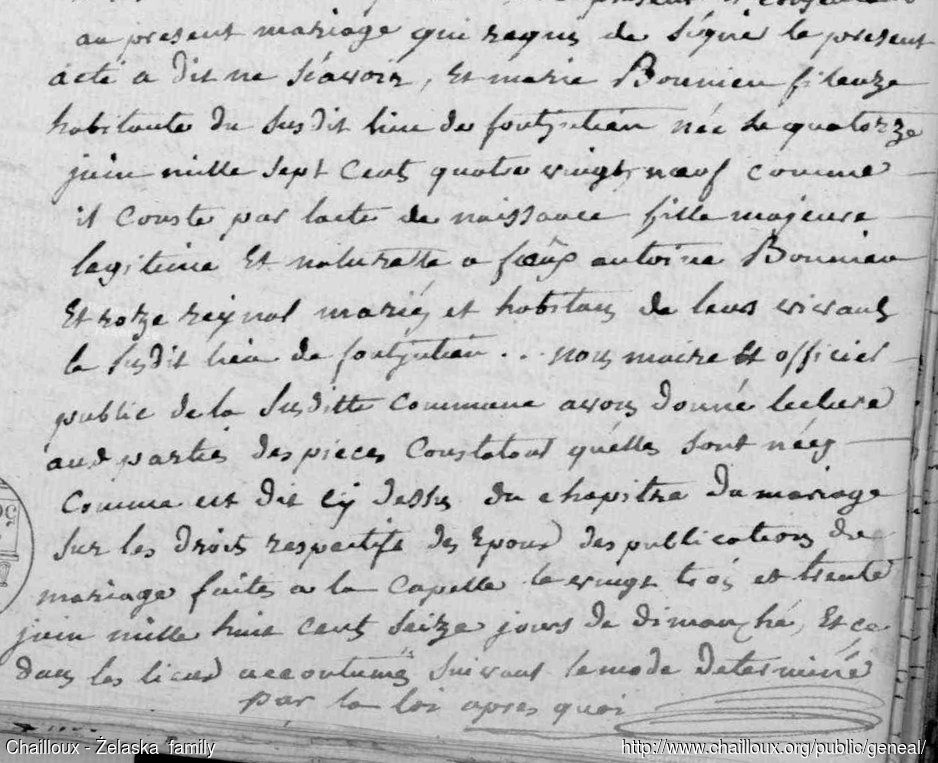 present et consentant
au present mariage qui requis de signé le present
acte a dit ne sçavoir, Et marie Boumieu fileuze
habitante du susdit lieu de fontjulien née le quatorze
juin mille sept Cents quatre vingts nœuf comme
il Conste par lacte de naissance fille majeure
legitime Et naturelle a feûs antoine Boumieu
Et roze reynal mariés et habitans de leurs vivants
le susdit lieu de fontjulien . . nous maire Et officier
public de la susditte commune avons donné lecture
aux parties des pieces Constatant qu'elles sont nées
Comme est dit cy dessus du chapitre du mariage
sur les droits respectifs des Epoux des publications de
mariage faites a la Capelle le vingt trois et trente
juin mille huit cents seize jours de dimanche, Et ce
dans les lieux accoutumés suivant le mode determiné
par la loi apres quoi
Chailloux - Želaska family
http://www.chailloux.org/public/geneal/